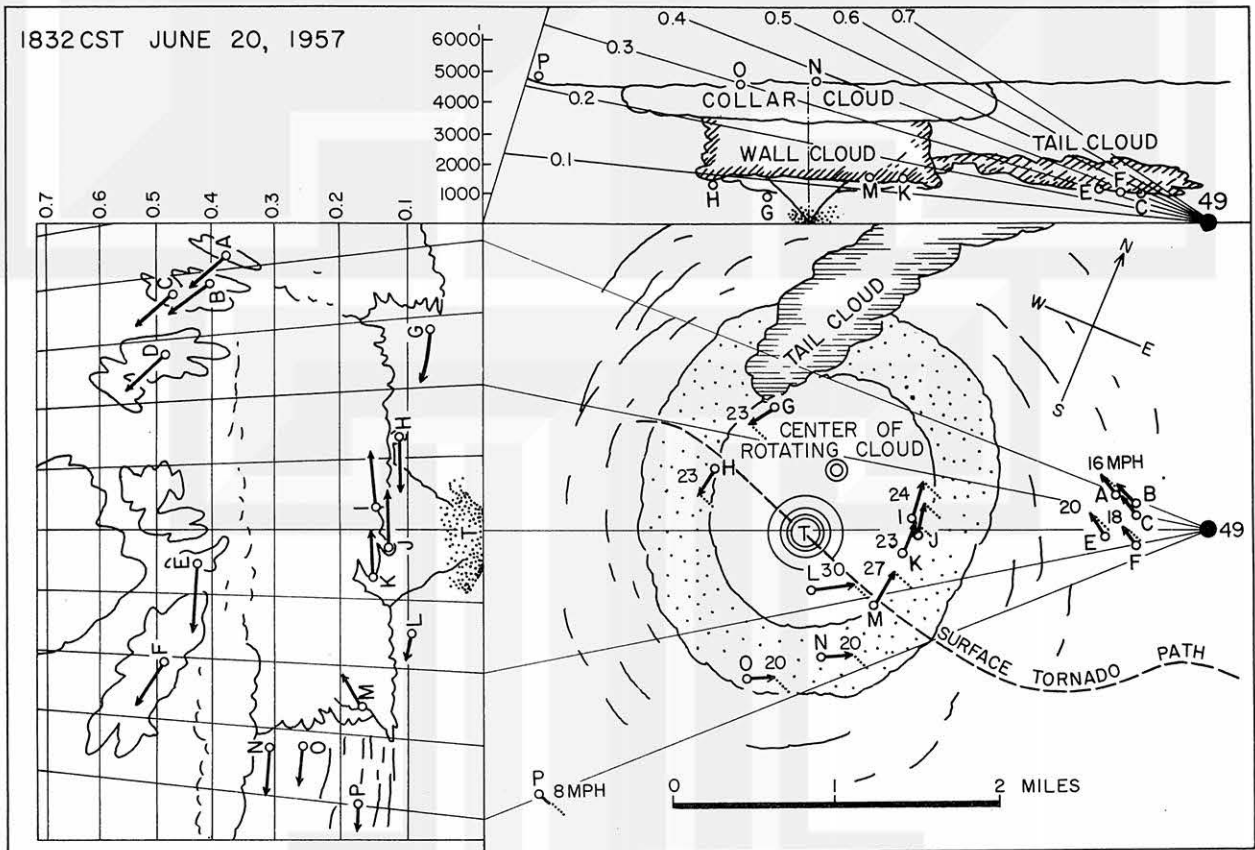 1832 CST JUNE 20, 1957
6000
5000
4000
3000
2000
1000
P
0.1
0.2
0.3
0.4
0.5
0.6
0.7
O
N
COLLAR CLOUD
WALL CLOUD
TAIL CLOUD
H
G
M
K
E
F
C
49
0.7
0.6
0.5
0.4
0.3
0.2
0.1
A
B
C
D
E
F
G
H
I
J
K
L
M
N
O
P
T
TAIL CLOUD
N
W
E
S
23
G
CENTER OF
ROTATING CLOUD
23
H
24
I
J
23
K
T
L 30
27
M
N 20
O 20
P
8 MPH
16 MPH
A
B
C
20
E
18
F
49
SURFACE TORNADO PATH
0
1
2 MILES